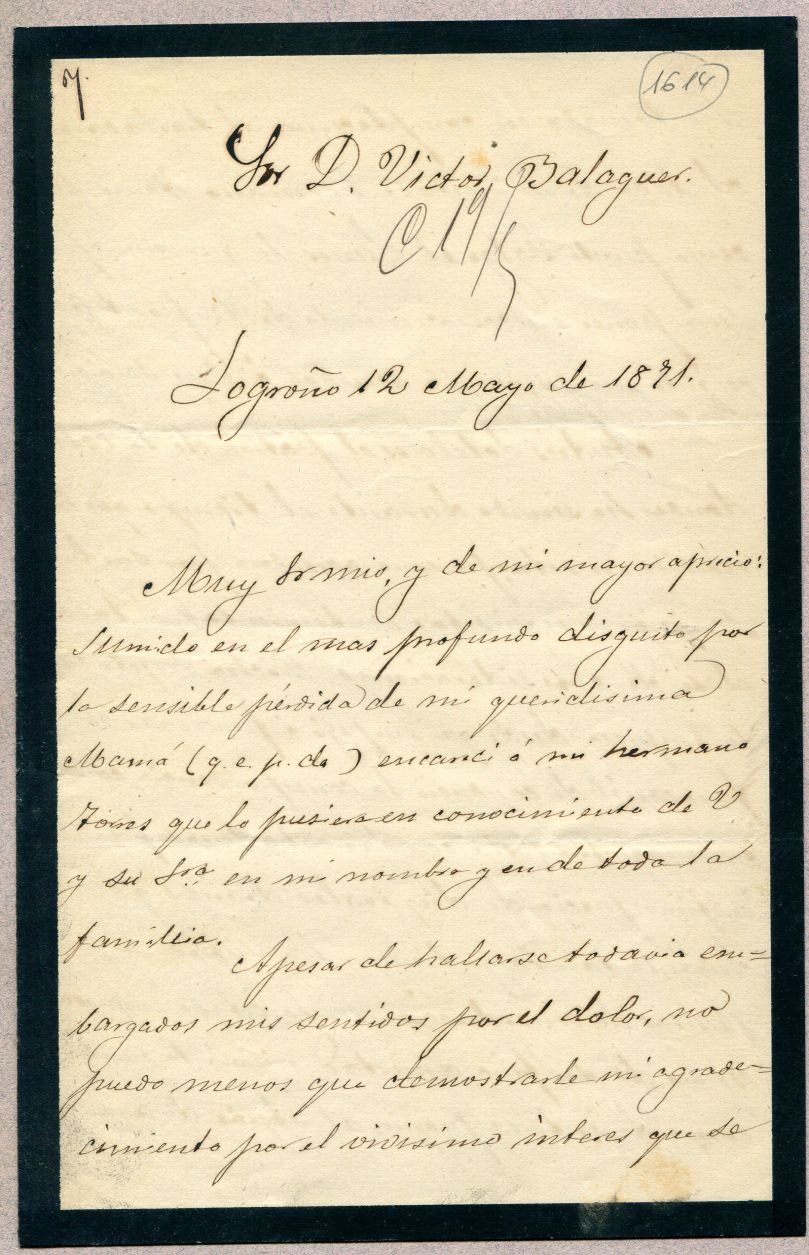 7.
1614
Sor D. Victor Balaguer.
C 19/5
Logroño 12 Mayo de 1871.
Muy Sr mio, y de mi mayor aprecio:
Sumido en el mas profundo disgusto por
la sensible pérdida de mi queridisima
Mamá (q. e. p. d.) encarecí á mi hermano
Torres que lo pusiera en conocimiento de V
y su Sra. en mi nombre y en de toda la
familia.
Apesar de hallarse todavia em=
bargados mis sentidos por el dolor, no
puedo menos que demostrarle mi agrade=
cimiento por el vivisimo interes que se